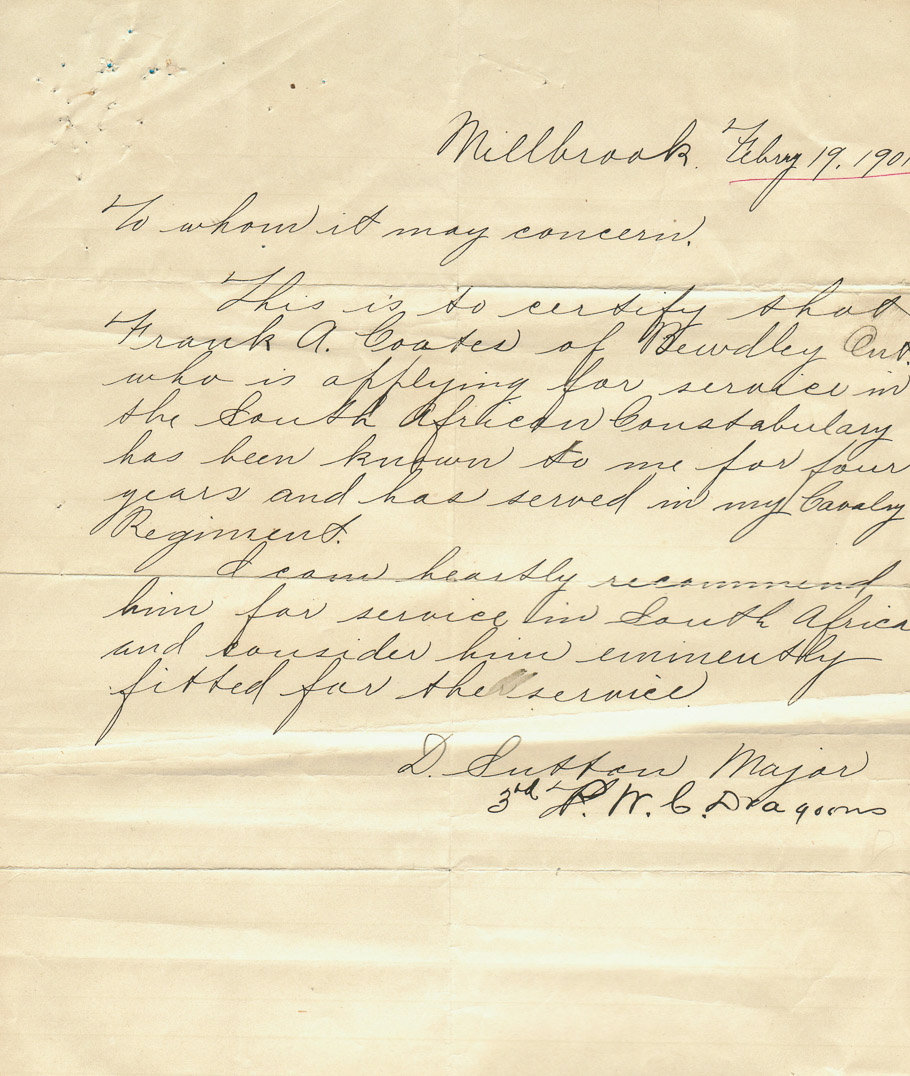 Millbrook. Febry 19. 1901
To whom it may concern.
This is to certify that
Frank A. Coates of Bewdley Ont.
who is applying for service in
the South African Constabulary
has been known to me for four
years and has served in my Cavalry
Regiment.
I can heartly recommend
him for service in South Africa
and consider him eminently
fitted for the service
D. Sutton Major
3rd P. W. C. Dragoons